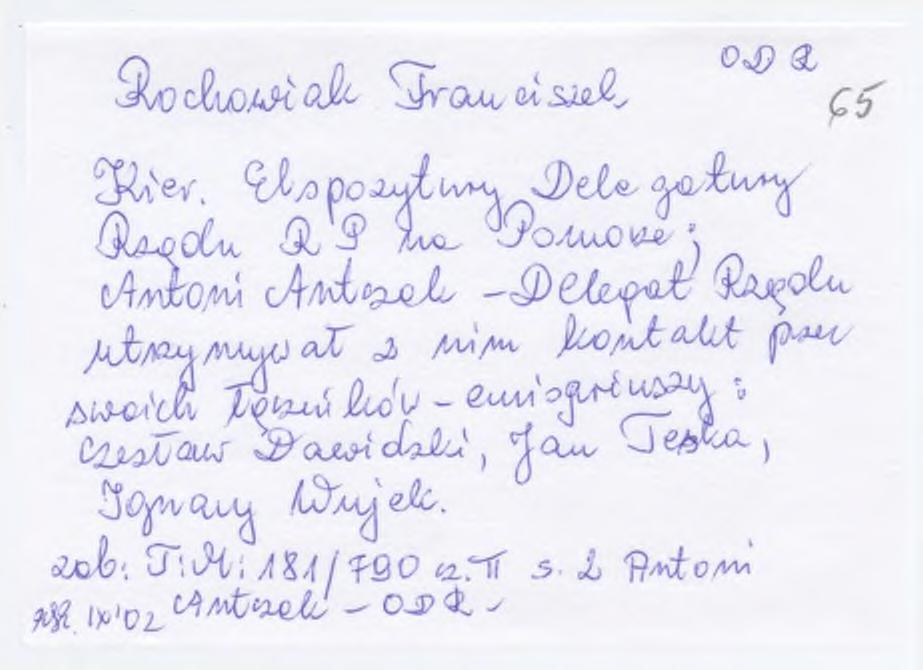 ODR
Rochowiak Franciszek
65
Kier. Ekspozytury Delegatury
Rządu RP na Pomorze;
Antoni Antczak - Delegat Rządu
utrzymywał z nim kontakt przez
swoich łączników - emisariuszy:
Czesław Dawidski, Jan Teska,
Ignacy Wujek.
zob: T:M: 181/790 cz. II s. 2 Antoni
IX'02 Antczak - ODR -